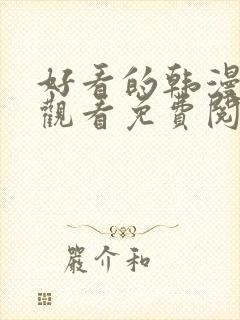 好看的韩漫
觀看免費閱
嚴介和